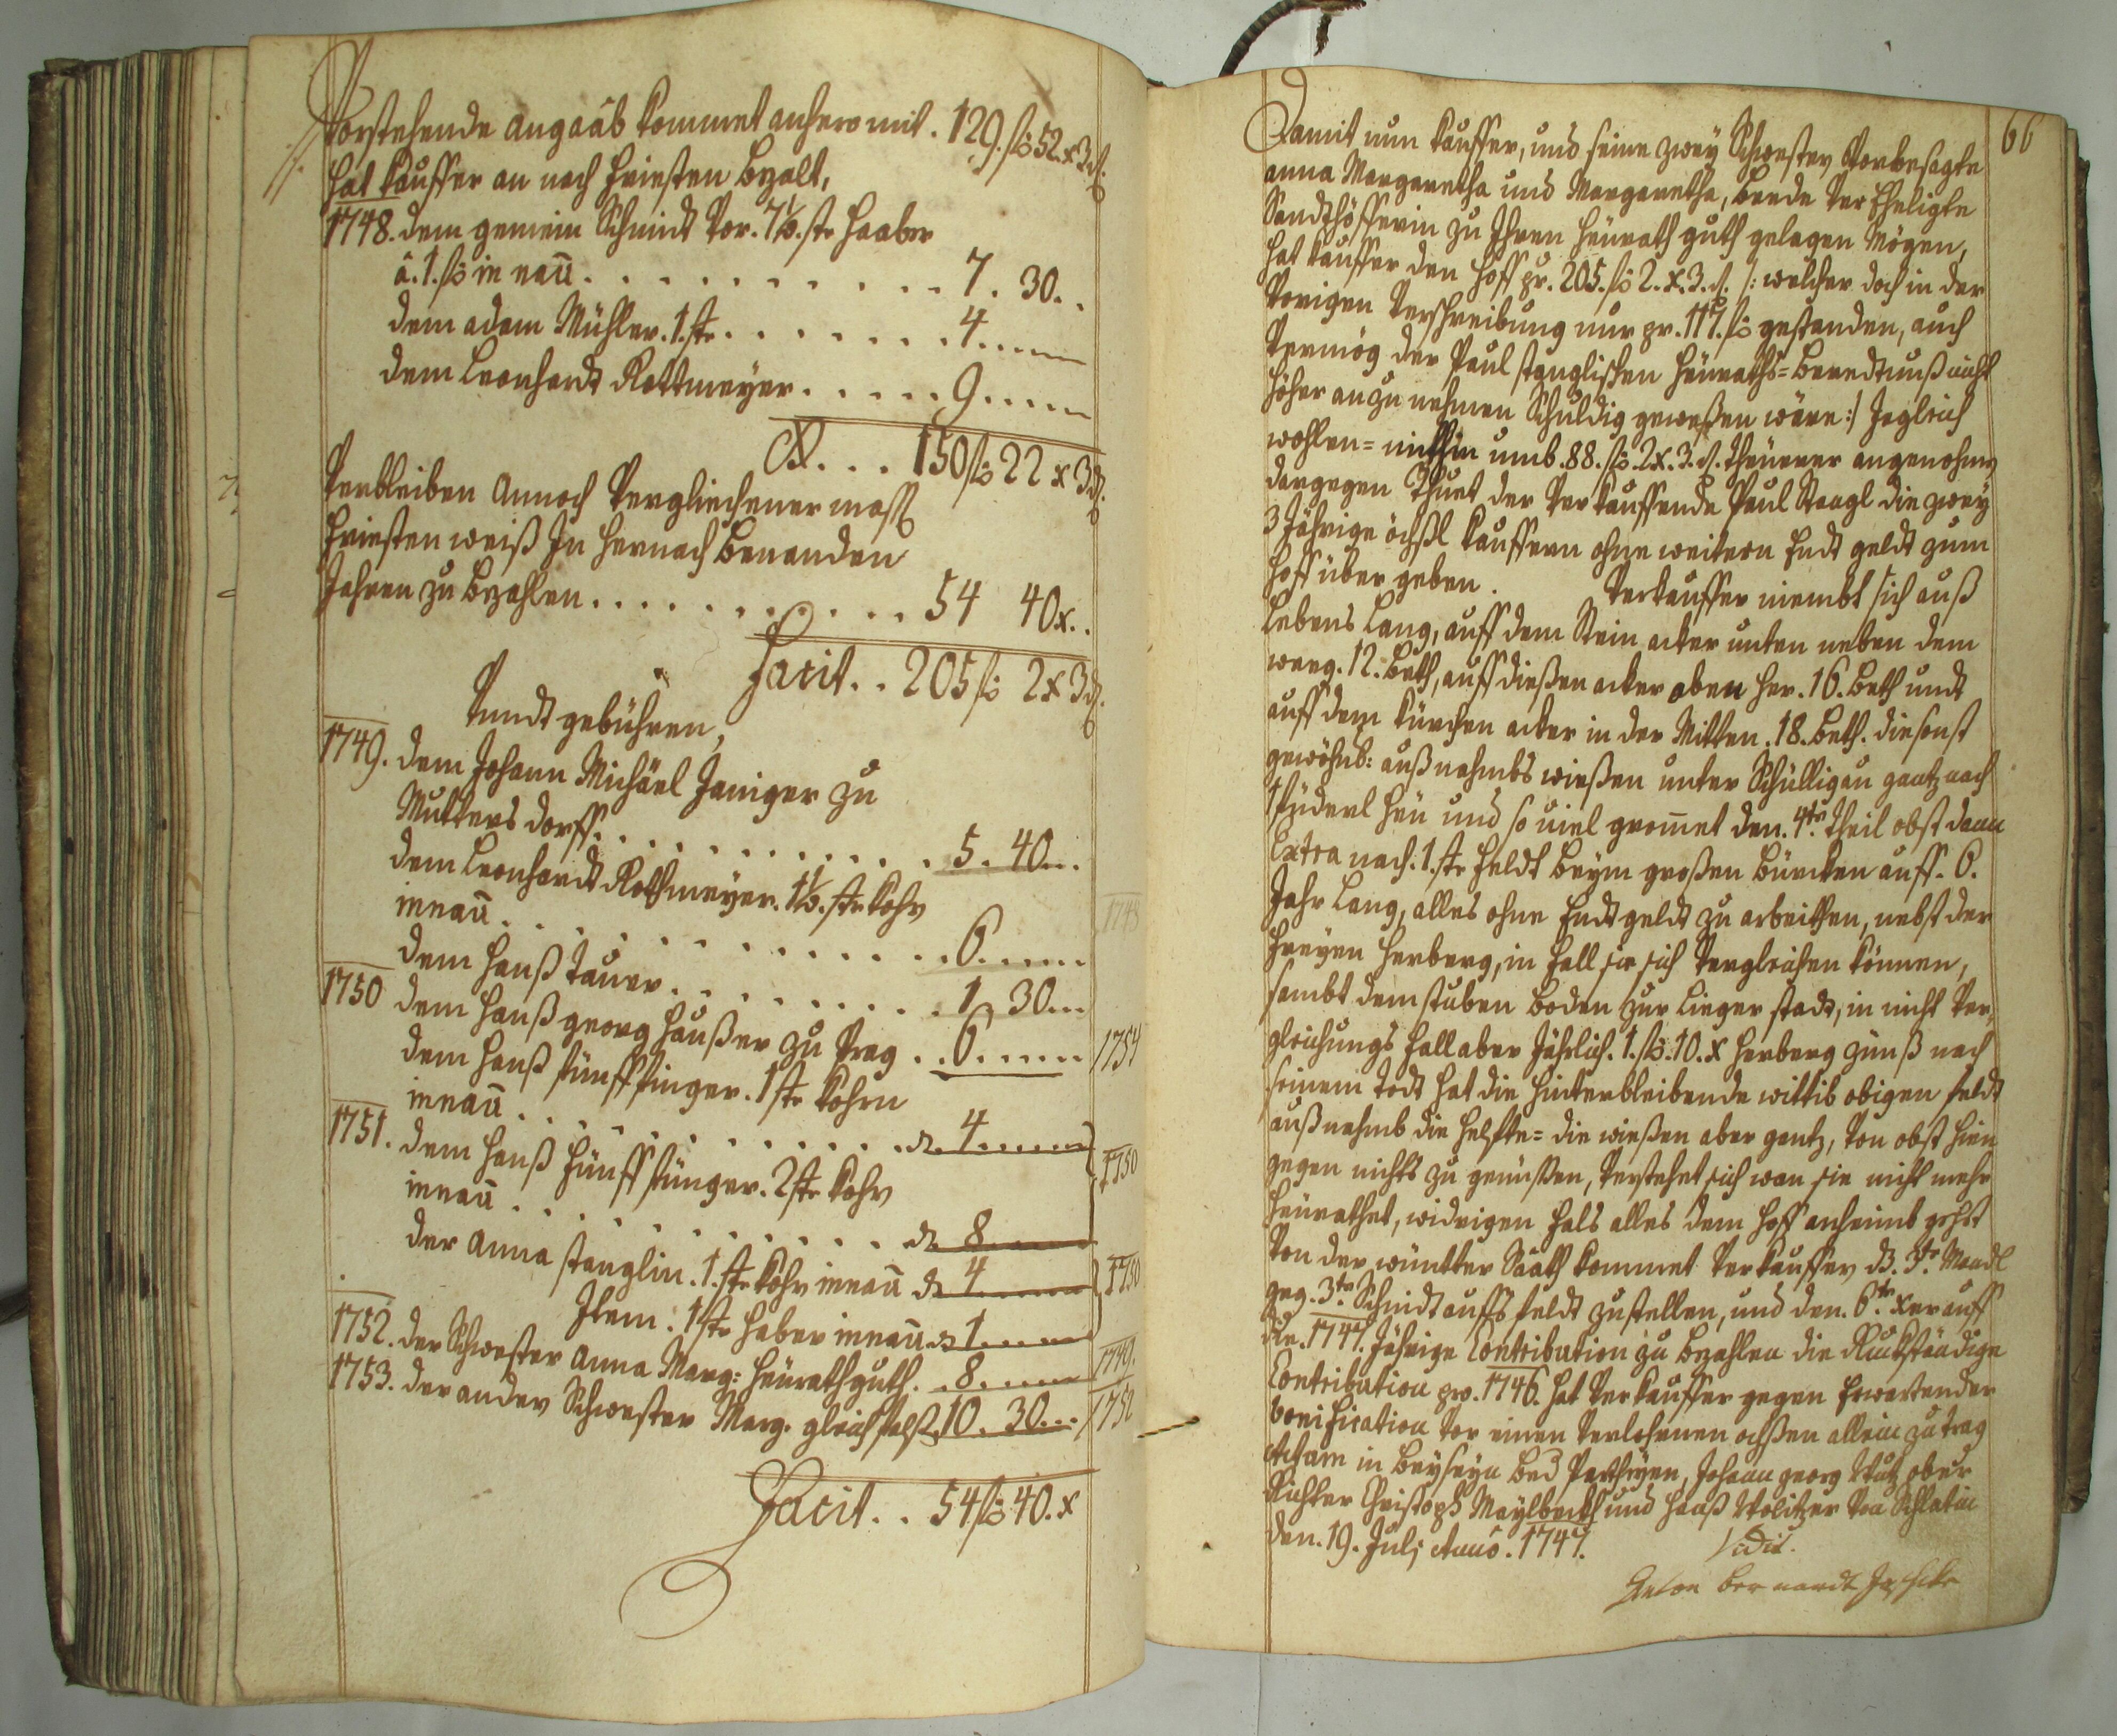 Vorstehende angaab kommet anhero mit . 129. fl 52. x 3 d.
hat kauffer an nach fristen bezalt,
1748. dem gemein Schmidt vor. 7½. str haaber
â. 1. fl in nau . . . . . . . 7. 30. .
dem adam Mühler. 1. str . . . . . . . 4 . . . .
dem Leonhardt Rottmeyer . . . . . 9 . . . .
. . . 150 fl 22 x 3 d.
Verbleiben annoch Verglichener mass
fristen weiß In hernach benanden
Jahren zu bezahlen . . . . . . . . . 54 40 x. .
Facit . . 205 fl 2 x 3 d.
Undt gebühren,
1749. dem Johann Michäel Janiger zu
Muttersdorff . . . . . . . . . . 5. 40 . . .
dem Leonhardt Rottmeyer. 1½. str kohr
innau . . . . . . . . . . 6 . . . .
1748
dem Hanß Tauer . . . . . . . . 1. 30 . . .
1750 dem Hanß georg haußer zu Prag . . 6 . . . .
1754
dem Hanß fünffinger. 1 str kohrn
innau . . . . . . . . . 4 . . . .
1751. dem Hanß fünffünger. 2 str kohr
1750
innau . . . . . . . . . 8 . . . .
der Anna stanglin. 1. str kohr innau 4 . . . .
1750
Item. 1 str haber innau 1 . . . .
1752. der Schwester Anna Marg: heurathguth . . 8 . . . .
1749.
1753. der ander Schwester Marg. gleichfalß 10. 30 . . .
1752
Facit . . 54 fl 40. x
66
Damit nun kauffer, und seine zwey Schwester Vorbesagte
anna Margaretha und Margaretha, beede Ver Eheligte
zu Ihren heurath guth gelagen mögen,
hat kauffer den hoff pr. 205. fl 2. x. 3. d. /: welcher doch in der
Vorigen Verschreibung nur pr. 117. fl gestanden, auch
Vermög der Paul stanglischen heuraths= beredtnuß nicht
höher anzu nehmen schuldig geweßen wäre :/ Jegleich
wohlen= mithin umb. 88. fl. 2 x. 3. d. theuerer angenohmen
dargegen Thuet der Verkauffende Paul Stangl die zwey
3 Jährige öchßl kauffern ohne weitern Endt geldt zum
hoff über geben. Verkauffer niembt sich auß
Lebens Lang, auff dem Stein acker unten neben dem
weeg. 12. beth, auff dießen acker oben her. 16. beth undt
auff dem kürchen acker in der Mitten. 18. beth. die sonst
gewöhnl: außnahmbs wießen unter Schülligau gantz nach
1 füderl heu und so viel gromet den. 4tn Theil obst dann
Extra nach. 1. str feldt beym großen bürcken auff. 6.
Jahr Lang, alles ohne Endt geldt zu arbeithen, nebst der
freyen herberg, in fall sie sich Vergleichen können,
sambt dem stuben boden zur Lieger stadt, in nicht Ver-
gleichungs fall aber Jährlich. 1. fl. 10. x herberg zünß nach
seinem todt hat die hinterbleibende wittib obigen feldt
außnahmb die helfte= die wießen aber gantz, von obst hin
gegen nichts zu genüßen, Verstehet sich wan sie nicht mehr
heurathet, widrigen fals alles dem hoff anheimb gehet
Von der wüntter Saath kommet Verkauffer d. 3te Mandl
geg. 3tr Schnidt auffs feldt zustellen, und den. 6tn xer auff
die. 1747. Jährige Contribution zu bezahlen die Ruckständige
Contribution pro. 1746. hat Verkauffer gegen Erwartender
bonification vor einen Verlohrnen ochßen allein zu trag
Actum in beyseyn bed Partheyen, Johann georg ober
Richter Christoph Maylbeckh und Hanß Wolitzer Von Schlatin
den. 19. Julj Anno. 1747. Vidit.
Anton Bernardt